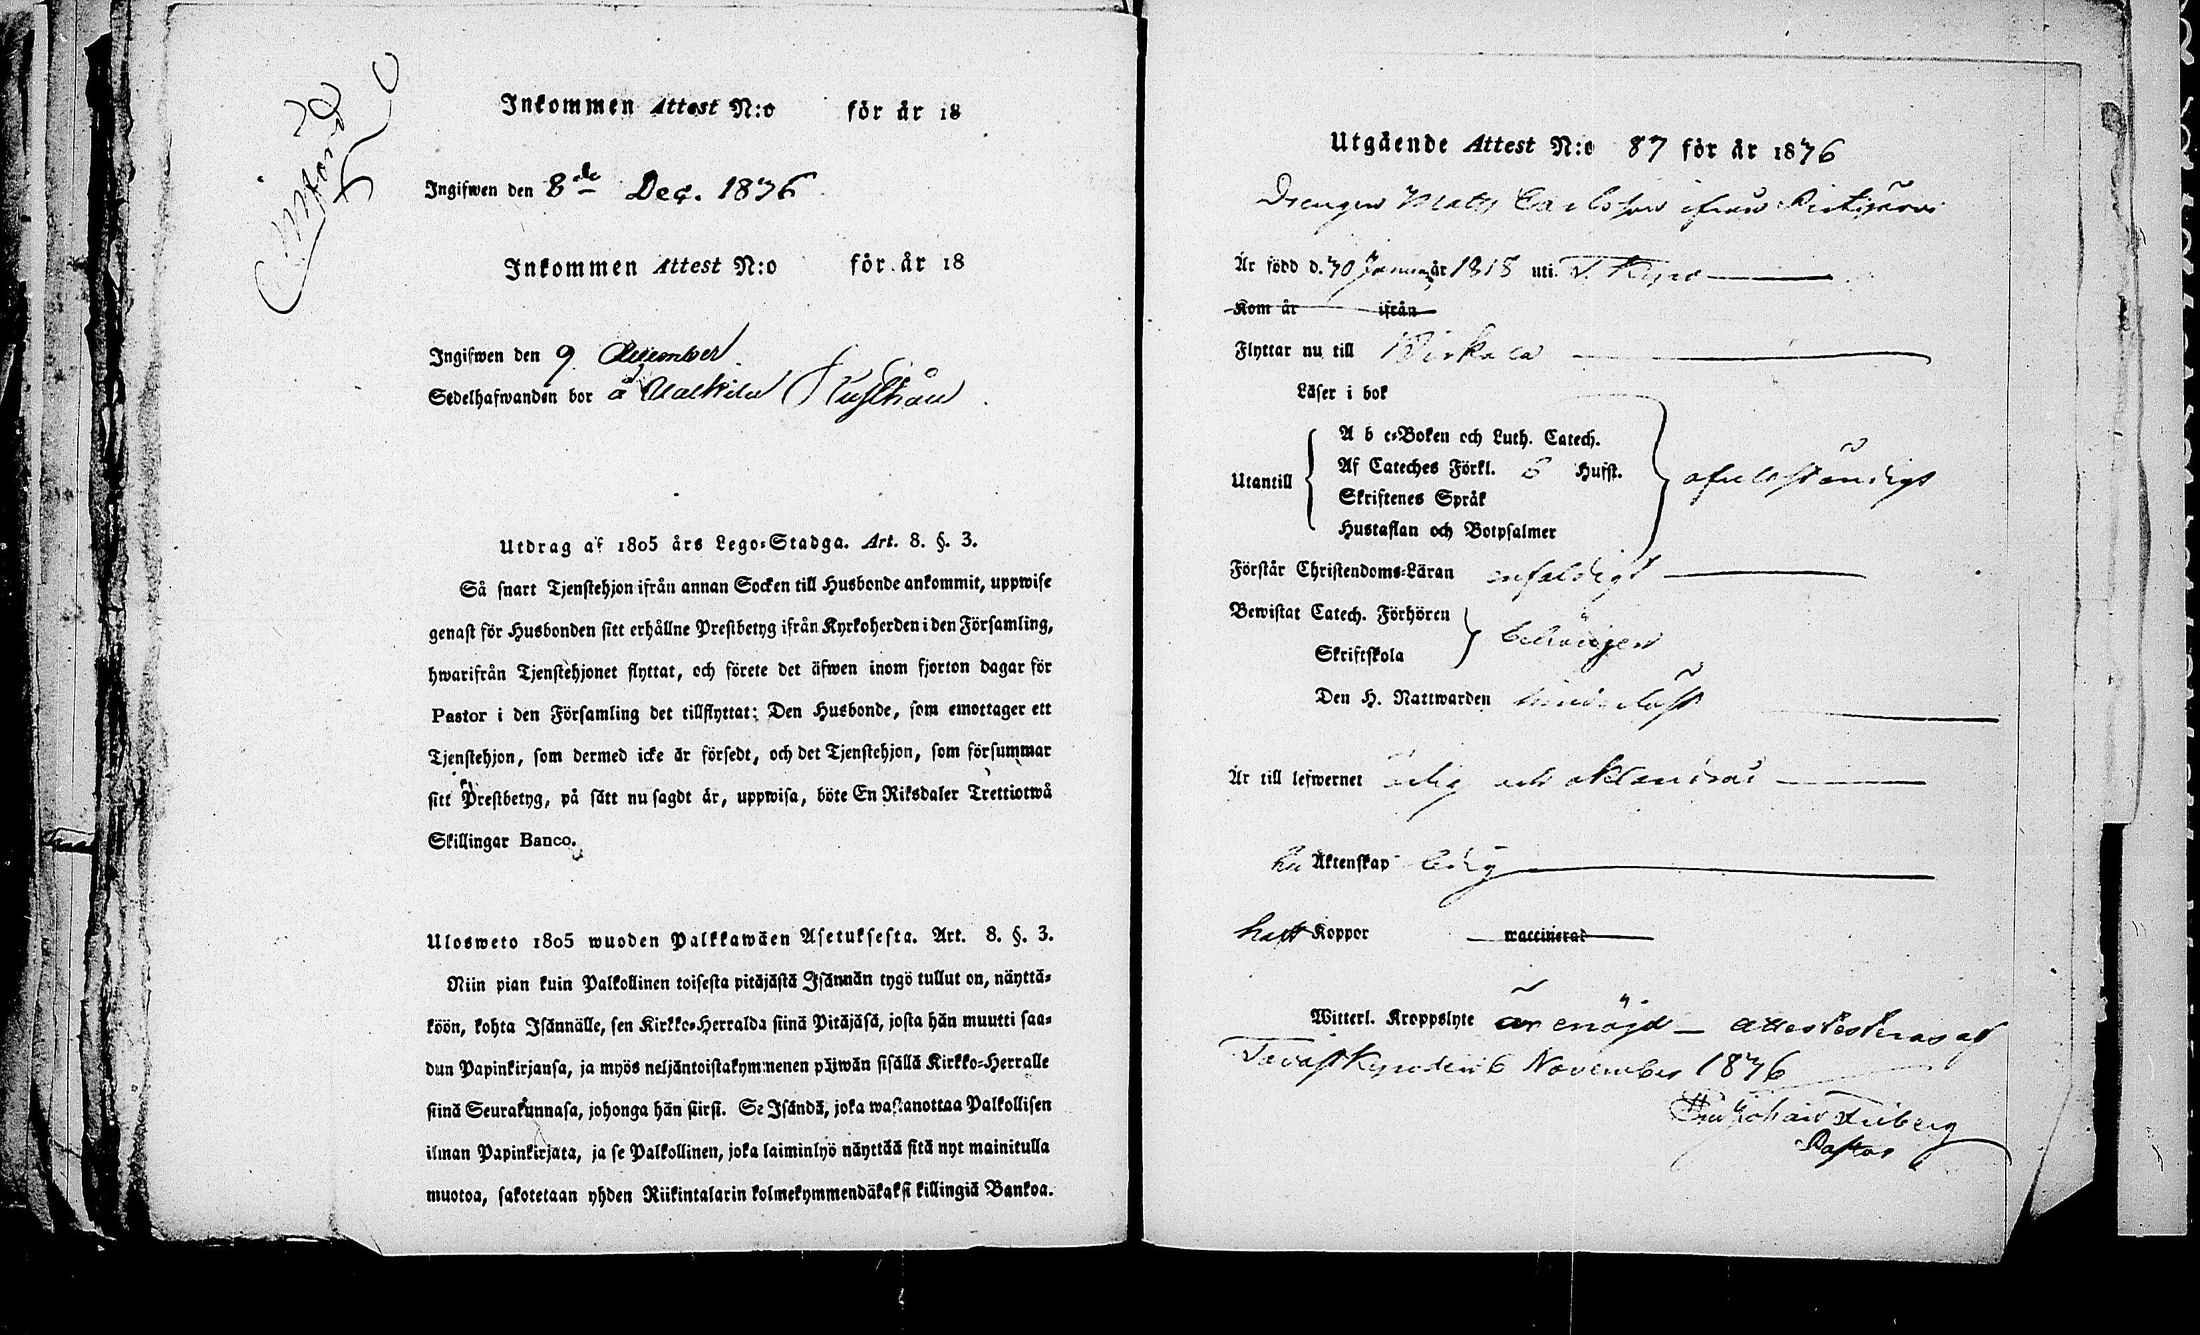 Införd
Inkommen Attest N:o för år 18
Ingifwen den 8de Dec. 1836
Inkommen Attest N:o för år 18
Ingifwen den 9 December
Sedelhafwanden bor å
Utdrag af 1805 års Lego-Stadga. Art. 8. §. 3.
Så snart Tjenstehjon ifrån annan Socken till Husbonde ankommit, uppwise
genast för Husbonden sitt erhållne Prestbetyg ifrån Kyrkoherden i den Församling,
hwarifrån Tjenstehjonet flyttat, och förete det äfwen inom fjorton dagar för
Pastor i den Församling det tillflyttat: Den Husbonde, som emottager ett
Tjenstehjon, som dermed icke är försedt, och det Tjenstehjon, som försummar
sitt Prestbetyg, på sätt nu sagdt är, uppwisa, böte En Riksdaler Trettiotwå
Skillingar Banco.
Ulosweto 1805 wuoden Palkkawäen Asetuksesta. Art. 8. §. 3.
Niin pian kuin Palkollinen toisesta pitäjästä Isännän tygö tullut on, näyttä-
köön, kohta Isännälle, sen Kirkko-Herralda siinä Pitäjäsä, josta hän muutti saa-
dun Papinkirjansa, ja myös neljäntoistakymmenen päiwän sisällä Kirkko-Herralle
siinä Seurakunnasa, johonga hän siirsi. Se Isändä, joka wastanottaa Palkollisen
ilman Papinkirjata, ja se Palkollinen, joka laiminlyö näyttää sitä nyt mainitulla
muotoa, sakotetaan yhden Riikintalarin kolmekymmendäkaksi killingiä Bankoa.
Utgående Attest N:o 87 för år 1836
Drengen Mats Carlsson ifrån
Är född d. 30 Januar år 1818 uti T. Kyro
Kom år ifrån
Flyttar nu till Birkala
Läser i bok
Utantill
A b c-Boken och Luth. Catech.
Af Cateches Förkl. 6 Hufst.
Skriftenes Språk
Hustaflan och Botpsalmer
ofullständigt
Förstår Christendoms-Läran enfaldigt
Bewistat Catech. Förhören
Skriftskola
behörigen
Den H. Nattwarden
Är till lefwernet ärlig och
Äktenskap ledig
haft Koppor waccinerad
Witterl. Kroppslyte är enögd - attesteras af
Tavastkyro den 6 November 1836
Johan Friberg
Pastor